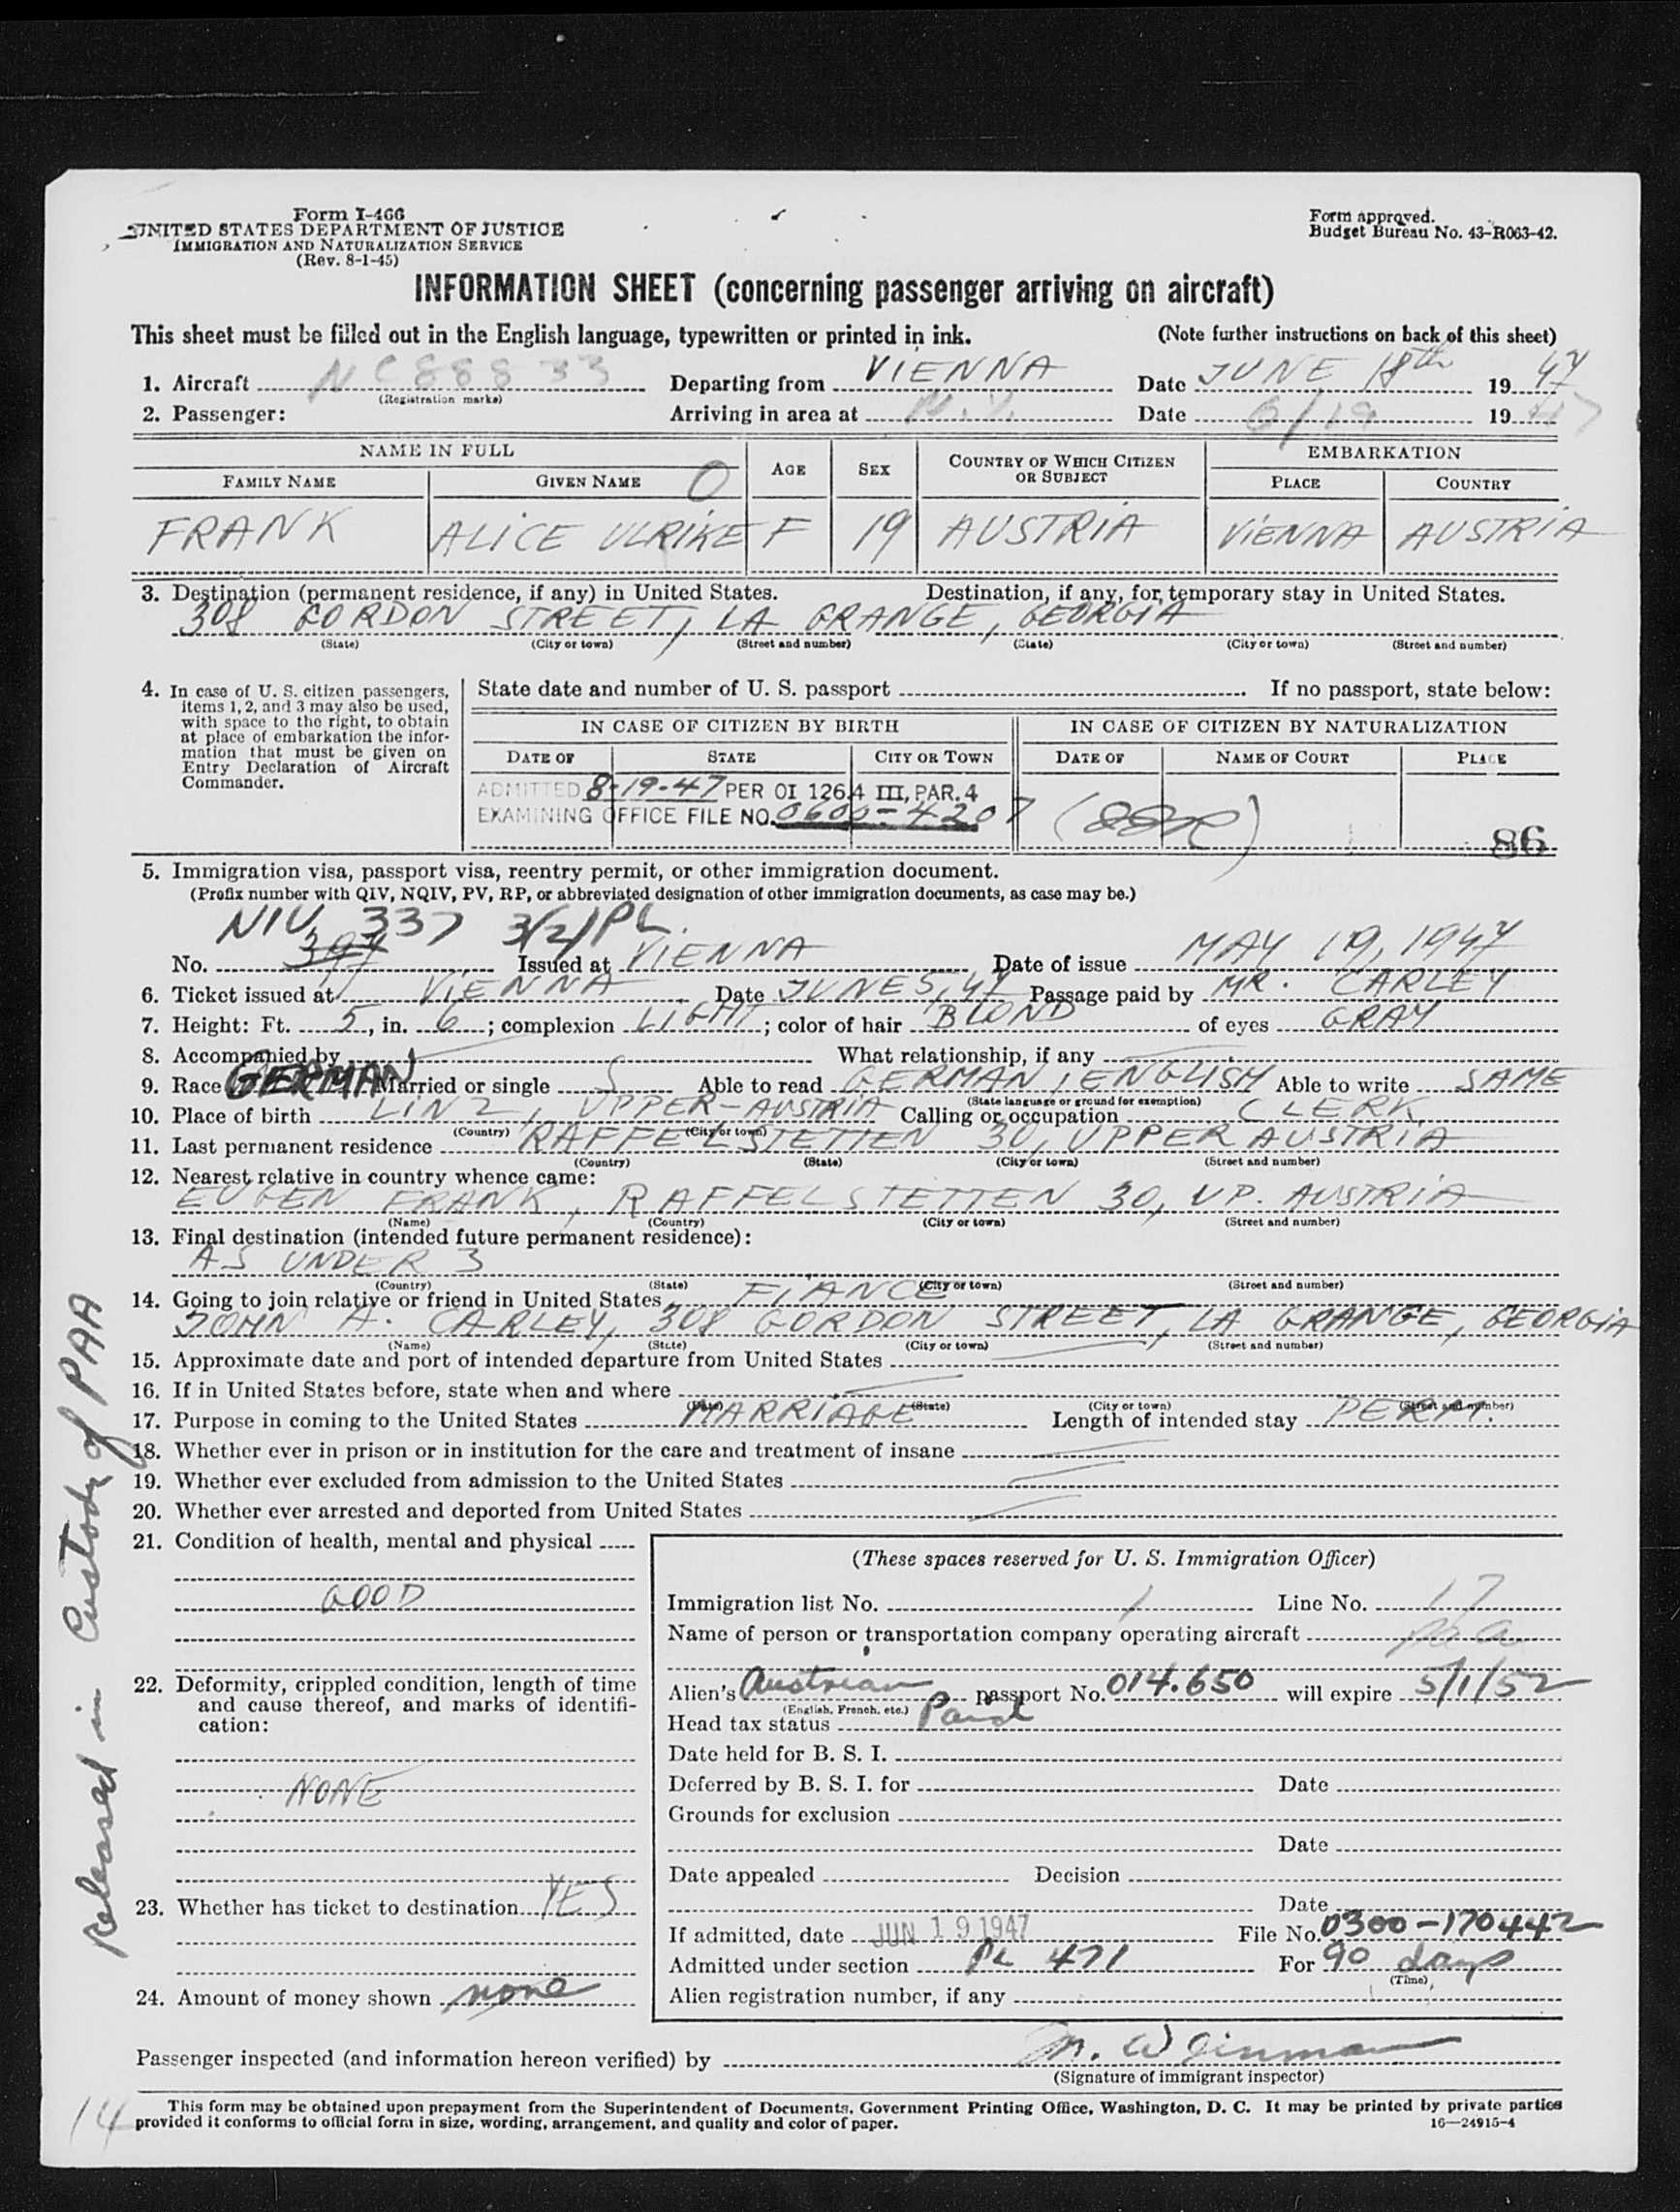 Form I-466
UNITED STATES DEPARTMENT OF JUSTICE
IMMIGRATION AND NATURALIZATION SERVICE
(Rev. 8-1-45)
Form approved.
Budget Bureau No. 43-R063-42.
INFORMATION SHEET (concerning passenger arriving on aircraft)
This sheet must be filled out in the English language, typewritten or printed in ink. (Note further instructions on back of this sheet)
1. Aircraft NC88833 Departing from VIENNA Date JUNE 18th 1947
(Registration marks)
2. Passenger: Arriving in area at N.Y. Date 6/19 1947
NAME IN FULL AGE SEX COUNTRY OF WHICH CITIZEN OR SUBJECT EMBARKATION
FAMILY NAME GIVEN NAME O PLACE COUNTRY
FRANK ALICE ULRIKE F 19 AUSTRIA VIENNA AUSTRIA
3. Destination (permanent residence, if any) in United States. Destination, if any, for temporary stay in United States.
308 GORDON STREET, LA GRANGE, GEORGIA
(State) (City or town) (Street and number) (State) (City or town) (Street and number)
4. In case of U. S. citizen passengers, items 1, 2, and 3 may also be used, with space to the right, to obtain at place of embarkation the information that must be given on Entry Declaration of Aircraft Commander.
State date and number of U. S. passport . If no passport, state below:
IN CASE OF CITIZEN BY BIRTH IN CASE OF CITIZEN BY NATURALIZATION
DATE OF STATE CITY OR TOWN DATE OF NAME OF COURT PLACE
ADMITTED 8-19-47 PER OI 126.4 III, PAR. 4
EXAMINING OFFICE FILE NO. 0600-4207
86
5. Immigration visa, passport visa, reentry permit, or other immigration document.
(Prefix number with QIV, NQIV, PV, RP, or abbreviated designation of other immigration documents, as case may be.)
NIV 337 3(2) PL
No. 397 Issued at VIENNA Date of issue MAY 19, 1947
6. Ticket issued at VIENNA Date JUNE 5, 47 Passage paid by MR. CARLEY
7. Height: Ft. 5, in. 6; complexion LIGHT; color of hair BLOND of eyes GRAY
8. Accompanied by What relationship, if any
9. Race GERMAN Married or single S Able to read GERMAN, ENGLISH Able to write SAME
(State language or ground for exemption)
10. Place of birth LINZ, UPPER-AUSTRIA Calling or occupation CLERK
(Country) (City or town)
11. Last permanent residence RAFFELSTETTEN 30, UPPER AUSTRIA
(Country) (State) (City or town) (Street and number)
12. Nearest relative in country whence came:
EUGEN FRANK, RAFFELSTETTEN 30, UP. AUSTRIA
(Name) (Country) (City or town) (Street and number)
13. Final destination (intended future permanent residence):
AS UNDER 3
(Country) (State) (City or town) (Street and number)
14. Going to join relative or friend in United States FIANCE
JOHN A. CARLEY, 308 GORDON STREET, LA GRANGE, GEORGIA
(Name) (State) (City or town) (Street and number)
15. Approximate date and port of intended departure from United States
16. If in United States before, state when and where
(Date) (State) (City or town) (Street and number)
17. Purpose in coming to the United States MARRIAGE Length of intended stay PERM.
18. Whether ever in prison or in institution for the care and treatment of insane
19. Whether ever excluded from admission to the United States
20. Whether ever arrested and deported from United States
21. Condition of health, mental and physical
GOOD
22. Deformity, crippled condition, length of time and cause thereof, and marks of identification:
NONE
23. Whether has ticket to destination YES
24. Amount of money shown none
(These spaces reserved for U. S. Immigration Officer)
Immigration list No. 1 Line No. 17
Name of person or transportation company operating aircraft paa
Alien's Austrian passport No. 014.650 will expire 5/1/52
(English, French, etc.)
Head tax status Paid
Date held for B. S. I.
Deferred by B. S. I. for Date
Grounds for exclusion
Date
Date appealed Decision
Date
If admitted, date JUN 19 1947 File No. 0300-170442
Admitted under section PL 471 For 90 days
(Time)
Alien registration number, if any
Passenger inspected (and information hereon verified) by M. Weinman
(Signature of immigrant inspector)
This form may be obtained upon prepayment from the Superintendent of Documents, Government Printing Office, Washington, D. C. It may be printed by private parties
provided it conforms to official form in size, wording, arrangement, and quality and color of paper. 16—24915-4
14
Released in Custody of PAA